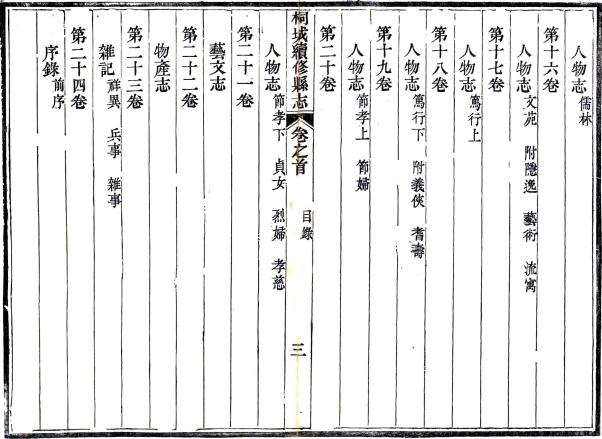 人物志 儒林
第十六卷
人物志 文苑 附隱逸 藝術 流寓
第十七卷
人物志 篤行上
第十八卷
人物志 篤行下 附義俠 耆壽
第十九卷
人物志 節孝上 節婦
第二十卷
桐城續修縣志 卷之首 目錄 三
人物志 節孝下 貞女 烈婦 孝慈
第二十一卷
藝文志
第二十二卷
物產志
第二十三卷
雜記 祥異 兵事 雜事
第二十四卷
序錄 前序